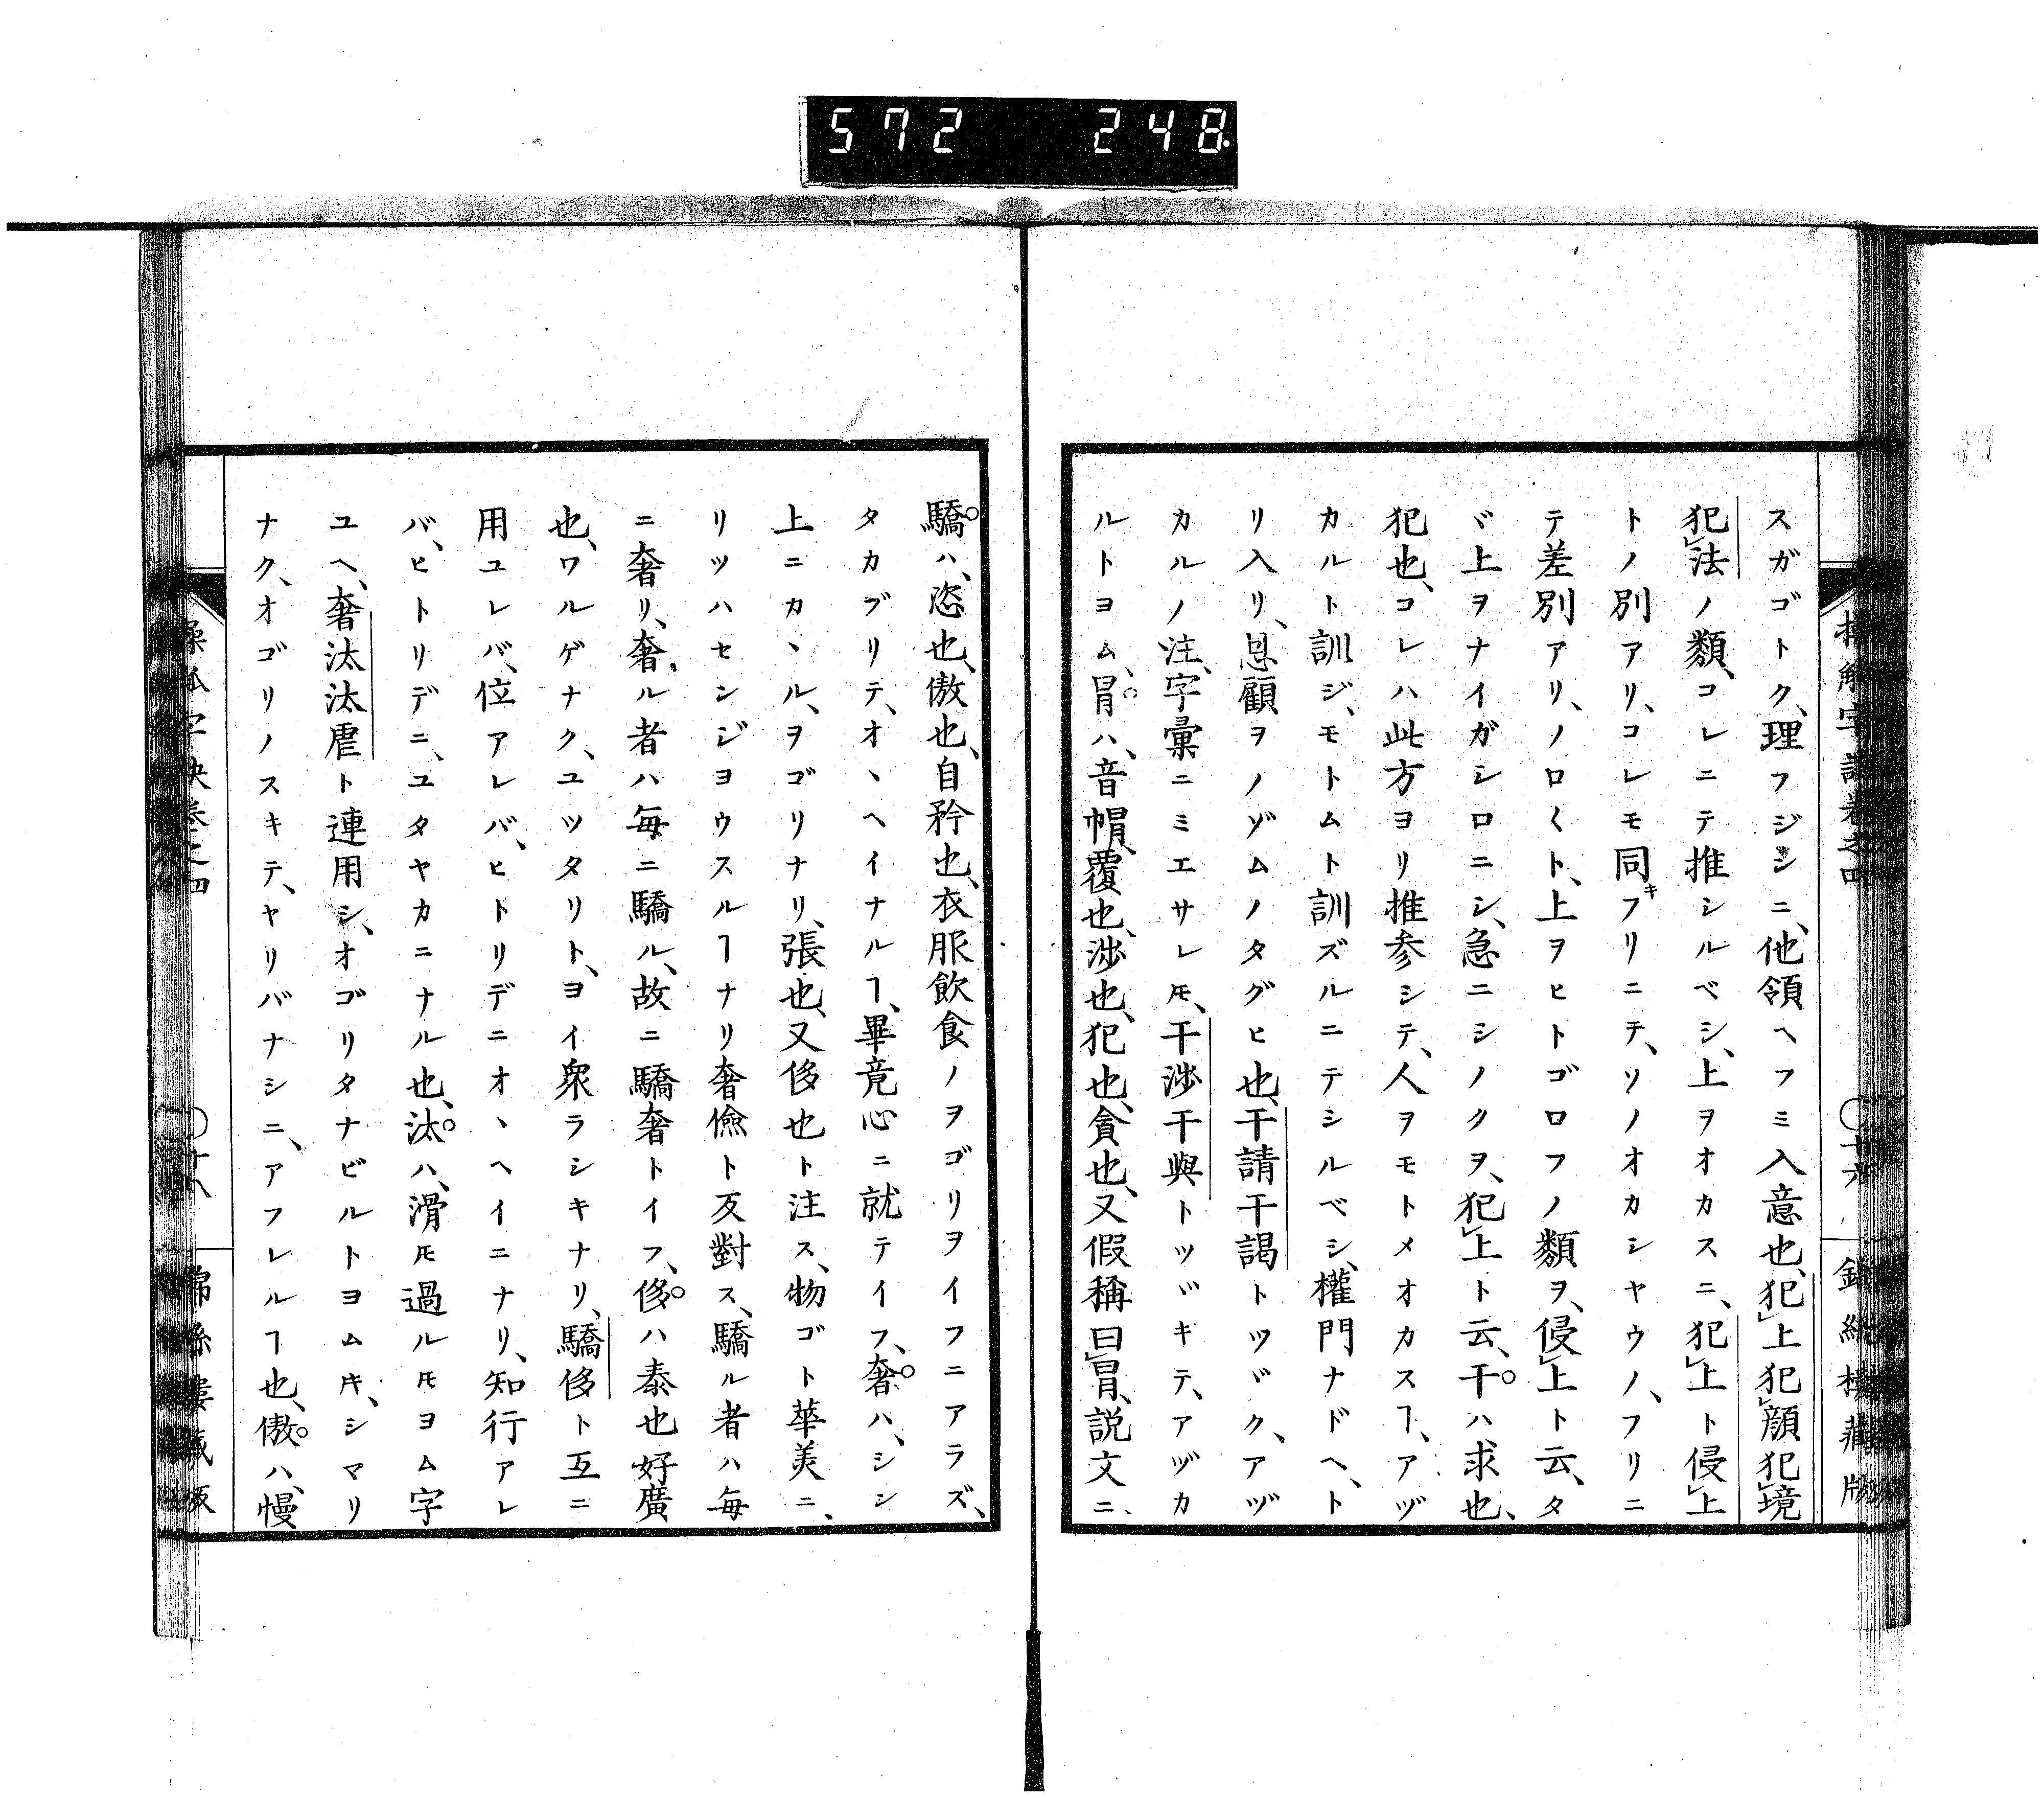 572 248.
スガゴトク、理フジンニ、他領ヘフミ入意也、犯上犯顔犯境
犯法ノ類、コレニテ推シルベシ、上ヲオカスニ、犯上ト侵上
トノ別アリ、コレモ同キフリニテ、ソノオカシヤウノ、フリニ
テ差別アリ、ノロ〱ト、上ヲヒトゴロフノ類ヲ、侵上ト云、タ
ヾ上ヲナイガシロニシ、急ニシノクヲ、犯上ト云、干ハ求也、
犯也、コレハ此方ヨリ推参シテ、人ヲモトメオカスヿ、アヅ
カルト訓ジ、モトムト訓ズルニテシルベシ、權門ナドヘ、ト
リ入リ、恩顧ヲノゾムノタグヒ也、干請干謁トツヾク、アヅ
カルノ注、字彙ニミエサレ𪜈、干渉干與トツヾキテ、アヅカ
ルトヨム、冐ハ、音帽、覆也、渉也、犯也、貪也、又假稱曰冐、説文ニ
驕ハ、恣也、傲也、自矜也、衣服飲食ノヲゴリヲイフニアラズ、
タカブリテ、オヽヘイナルヿ、畢竟心ニ就テイフ、奢ハ、シン
上ニカヽル、ヲゴリナリ、張也、又侈也ト注ス、物ゴト華美ニ、
リツハセンジヨウスルヿナリ奢儉ト反對ス、驕ル者ハ毎
ニ奢リ、奢ル者ハ毎ニ驕ル、故ニ驕奢トイフ、侈ハ泰也好廣
也、ワルゲナク、ユツタリト、ヨイ衆ラシキナリ、驕侈ト互ニ
用ユレバ、位アレバ、ヒトリデニオヽヘイニナリ、知行アレ
バ、ヒトリデニ、ユタヤカニナル也、汰ハ、滑𪜈過ル𪜈ヨム字
ユヘ、奢汰汰虐ト連用シ、オゴリタナビルトヨムキ、シマリ
ナク、オゴリノスキテ、ヤリバナシニ、アフレルヿ也、傲ハ、慢
操觚字訣巻之四 〇十八 錦絲樓藏版